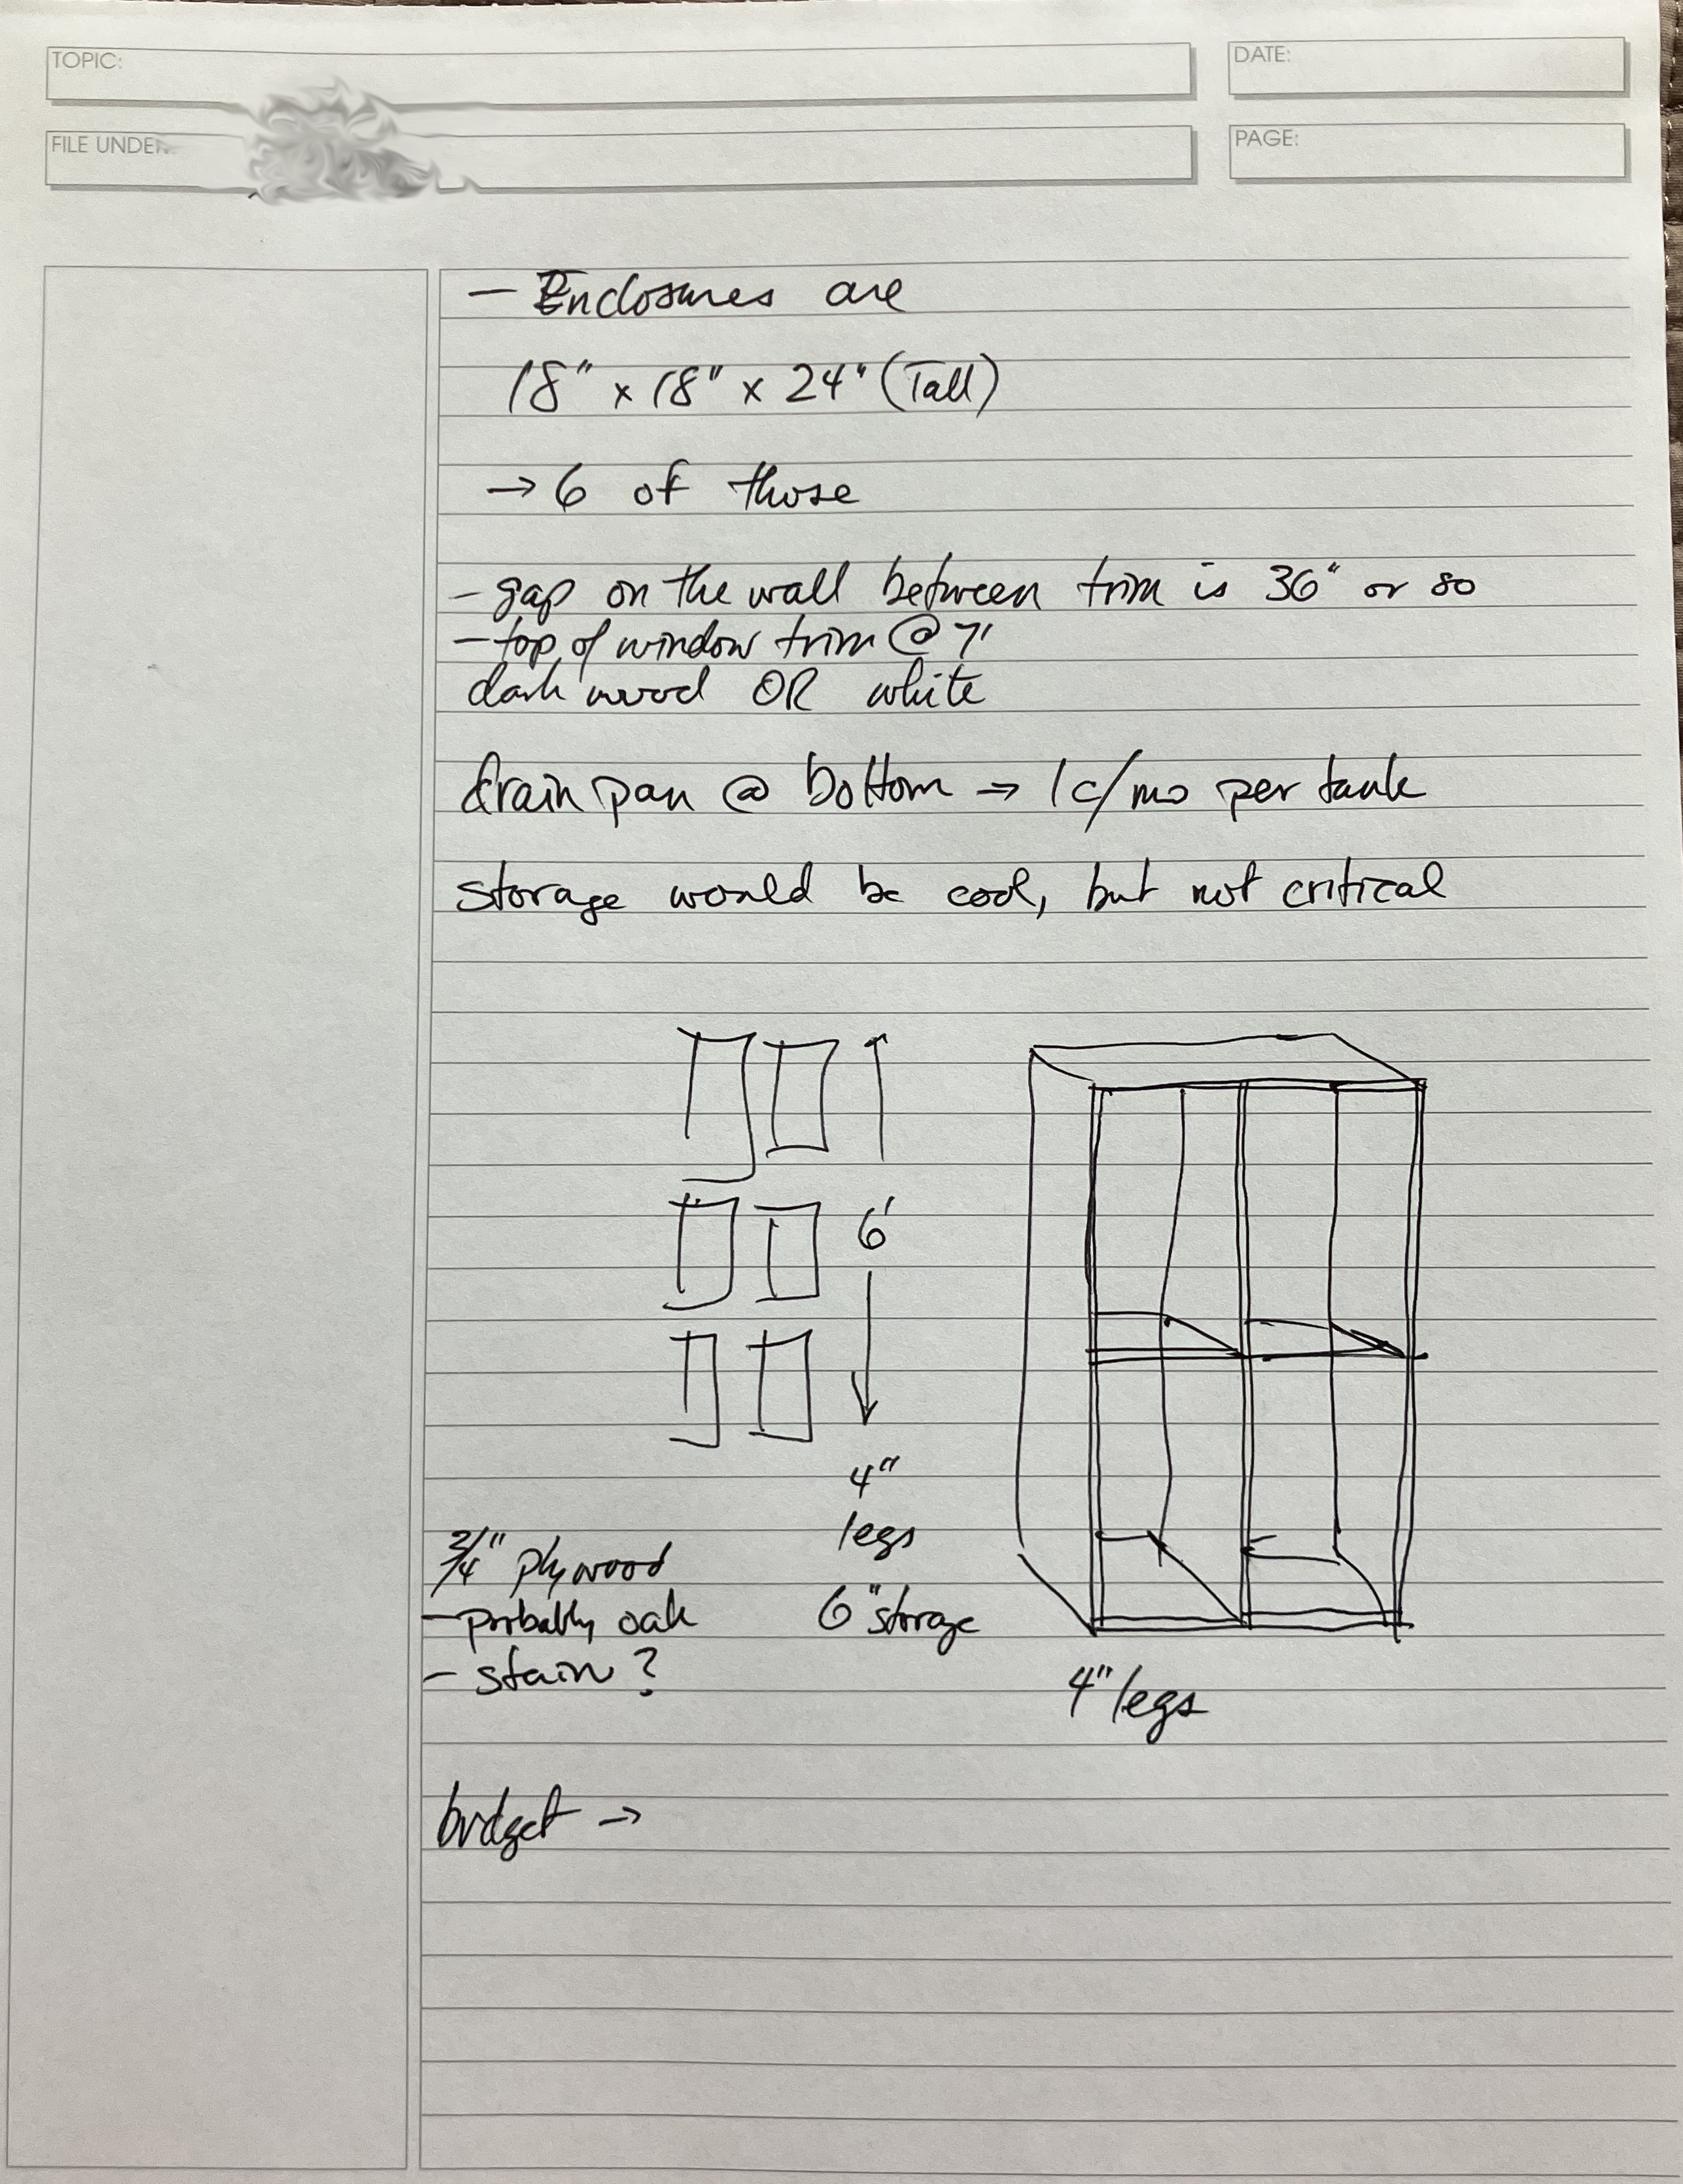 TOPIC:
DATE:
FILE UNDER:
PAGE:
- Enclosures are
18" x 18" x 24" (Tall)
→ 6 of those
- gap on the wall between trim is 36" or so
- top of window trim @ 7'
dark wood OR white
drain pan @ bottom → 1c/mo per tank
storage would be cool, but not critical
6'
4"
legs
3/4" plywood
- probably oak
6" storage
- stain?
4" legs
budget →